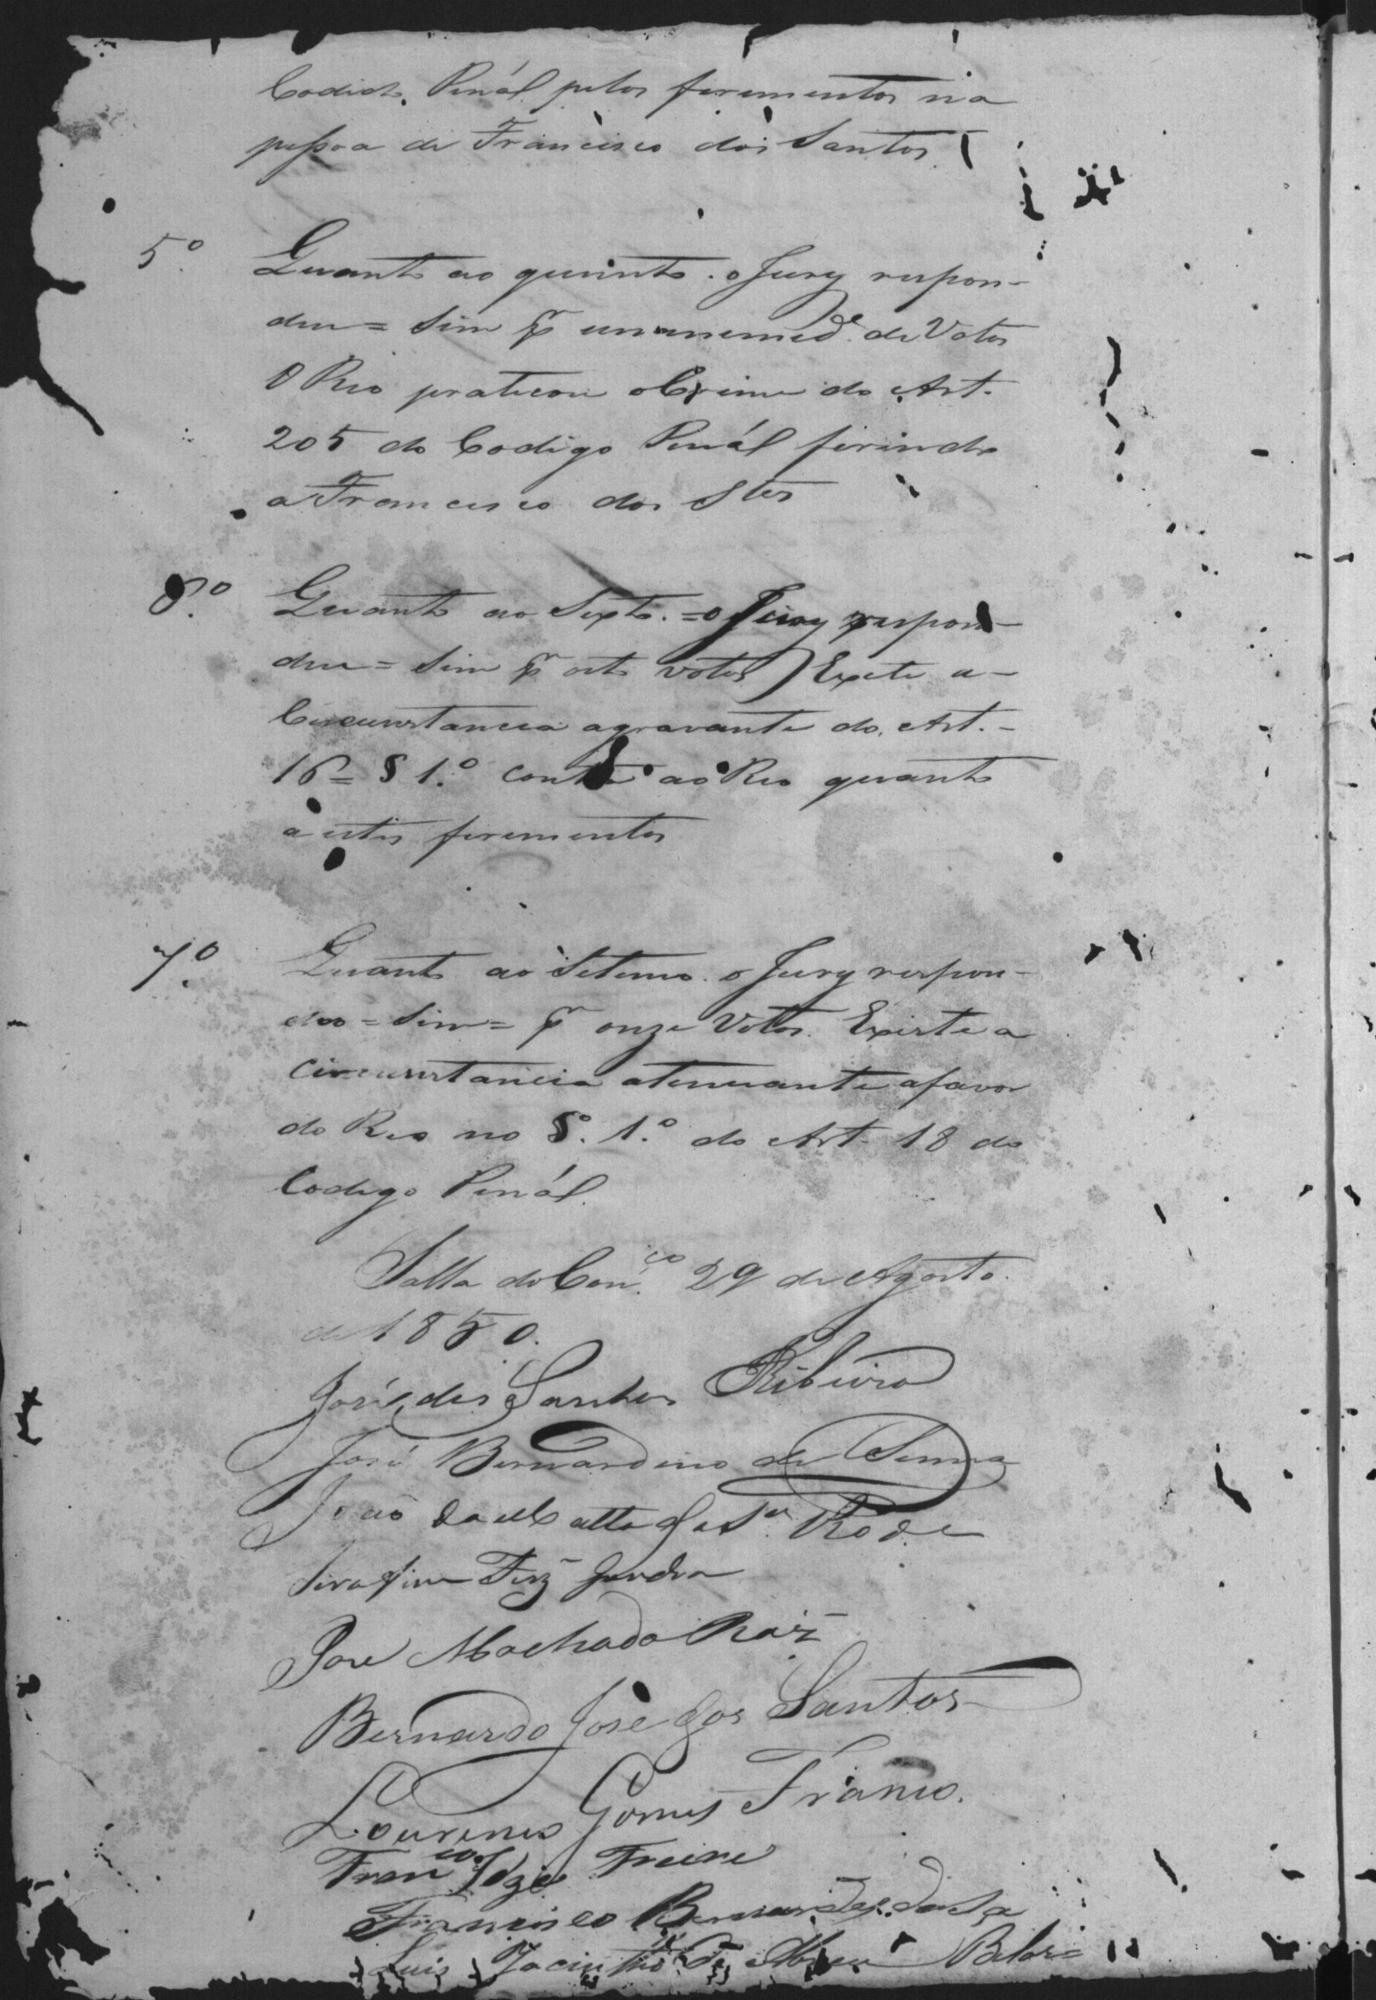 Codigo Penál pelos ferimentos na
pessoa de Francisco dos Santos
5.º Quanto ao quinto. o Jury respon-
deu = Sim pr unanemede. de Votos
O Reo praticou o Crime do Art.
205 do Codigo Penál ferindo
a Francisco dos Stos
6.º Quanto ao Sexto. = o Jury respon-
deu = Sim pr oito votos) Exete a-
Circunstancia agravante do Art. -
16 = § 1.º contra ao Reo quanto
a estes ferimentos
7.º Quanto ao Setemo. o Jury respon-
deo = Sim = pr onze Votos. Existe a
circunstancia atenuante afavor
do Reo no §º. 1.º do Art. 18 do
Codigo Penál.
Salla do Con.ço 29 de Agosto
de 1850.
José dos Santos Ribeiro
José Bernardino de Senna
João da Matta
Serafim Frz
Jose Machado
Bernardo José dos Santos
Lourenço Gomes Franco.
Franco José Freire
Francisco Bernardes da
Luis Jacintho de Abreu